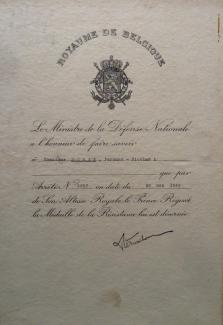 ROYAUME DE BELGIQUE
Le Ministre de la Défense Nationale
a l'honneur de faire savoir
à
que par
Arrêté N° en date du
de Son Altesse Royale le Prince Régent
la Médaille de la Résistance lui est décernée